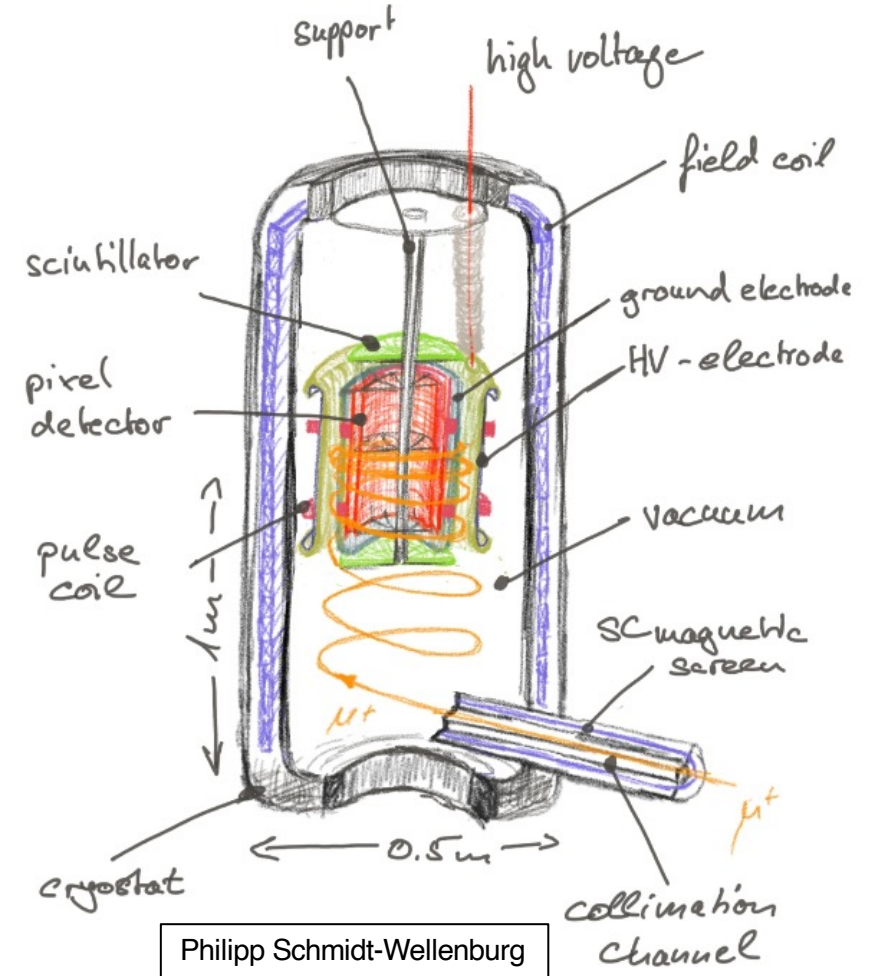 support
high voltage
field coil
scintillator
ground electrode
HV-electrode
pixel
detector
vacuum
pulse
coil
1m
SC magnetic
screen
μ+
μ+
0.5m
cryostat
collimation
channel
Philipp Schmidt-Wellenburg